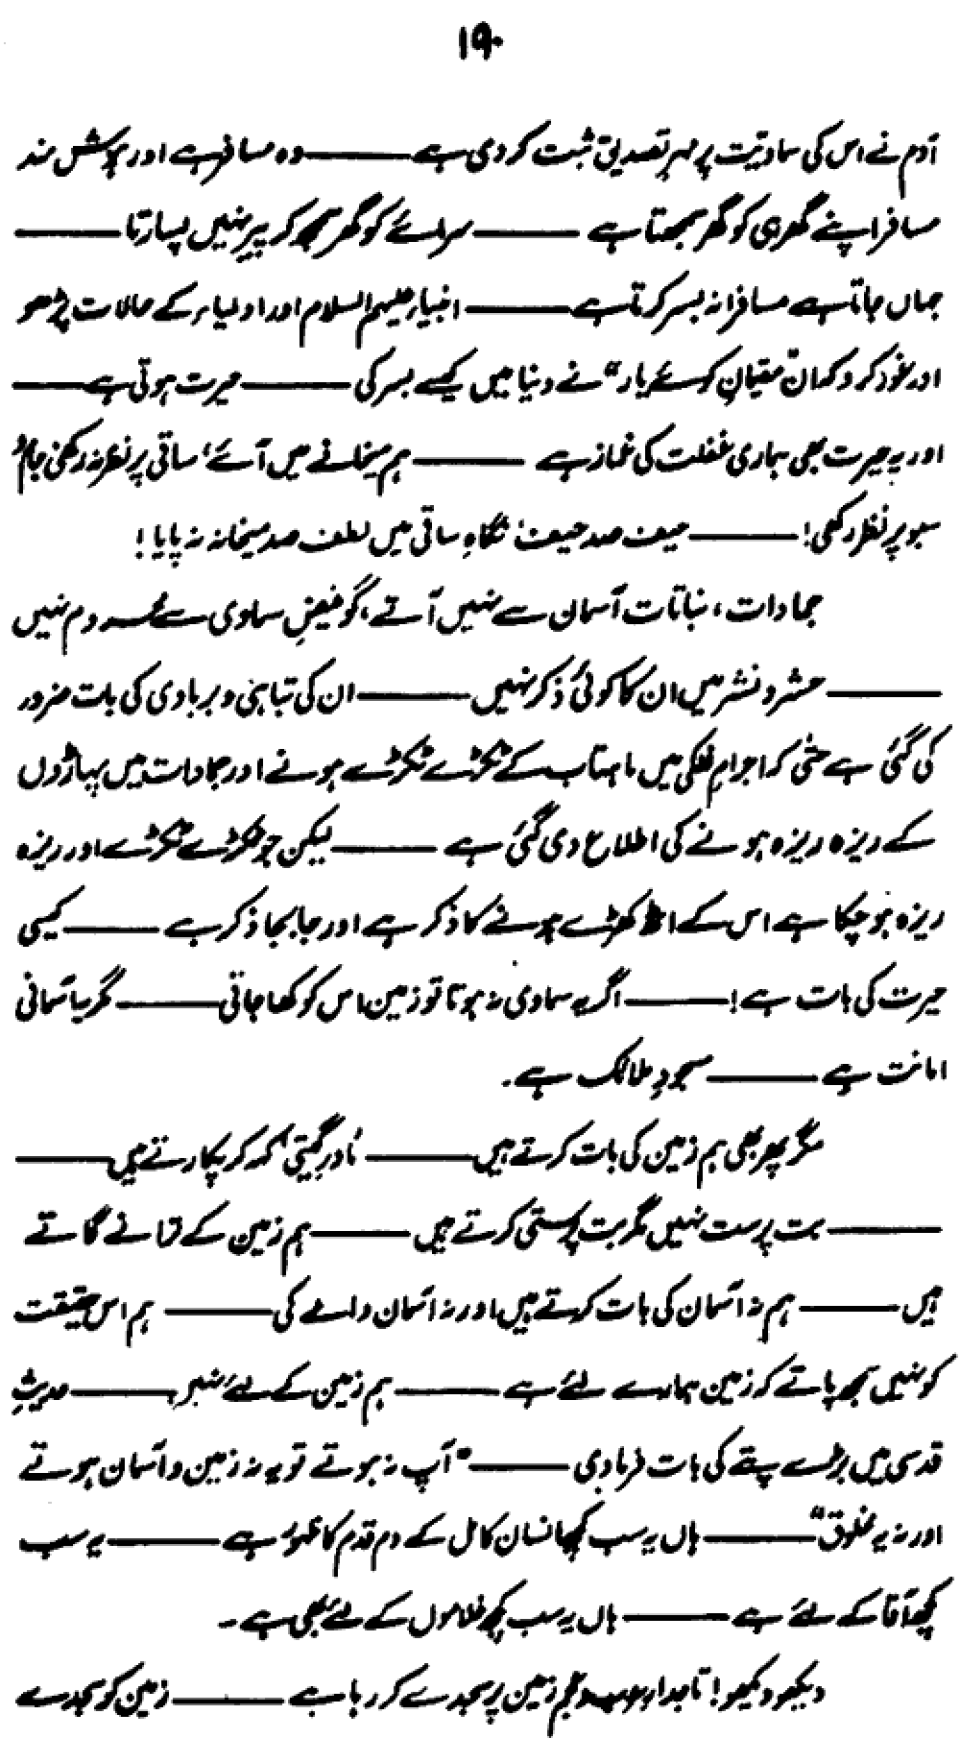 ۱۹۰
آدم نے اس کی سماویّت پر مہرِ تصدیق ثبت کر دی ہے ——— وہ مسافر ہے اور ہوش مند
مسافر اپنے گھر ہی کو گھر سمجھتا ہے ——— سرائے کو گھر سمجھ کر پیر نہیں پسارتا ———
جہاں جاتا ہے مسافرانہ بسر کرتا ہے ——— انبیاء علیہم السلام اور اولیاء کے حالات پڑھو
اور غور کرو کہ ان "مقیمانِ کوئے یار" نے دنیا میں کیسے بسر کی ——— حیرت ہوتی ہے ———
اور یہ حیرت بھی ہماری غفلت کی غماز ہے ——— ہم میخانے میں آئے، ساقی پر نظر نہ رکھی جام و
سبو پر نظر رکھی! ——— حیف صد حیف! نگاہِ ساقی میں لطف صد میخانہ نہ پایا!
جمادات، نباتات آسمان سے نہیں آتے، گو فیضِ سماوی سے محروم نہیں
——— حشر و نشر میں ان کا کوئی ذکر نہیں ——— ان کی تباہی و بربادی کی بات ضرور
کی گئی ہے حتٰی کہ اجرامِ فلکی میں ماہتاب کے ٹکڑے ٹکڑے ہونے اور جمادات میں پہاڑوں
کے ریزہ ریزہ ہونے کی اطلاع دی گئی ہے ——— لیکن جو ٹکڑے ٹکڑے اور ریزہ
ریزہ ہو چکا ہے اس کے اٹھ کھڑے ہونے کا ذکر ہے اور جا بجا ذکر ہے ——— کیسی
حیرت کی بات ہے! ——— اگر یہ سماوی نہ ہوتا تو زمین اس کو کھا جاتی ——— مگر یہ آسمانی
امانت ہے ——— مسجودِ ملائک ہے۔
مگر پھر بھی ہم زمین کی بات کرتے ہیں ——— 'مادرِ گیتی' کہہ کر پکارتے ہیں ———
——— بت پرست نہیں مگر بت پرستی کرتے ہیں ——— ہم زمین کے ترانے گاتے
ہیں ——— ہم نہ آسمان کی بات کرتے ہیں اور نہ آسمان والے کی ——— ہم اس حقیقت
کو نہیں سمجھ پاتے کہ زمین ہمارے لئے ہے ——— ہم زمین کے لئے نہیں ——— حدیثِ
قدسی میں بڑے پتے کی بات فرما دی ——— "آپ نہ ہوتے تو یہ نہ زمین و آسمان ہوتے
اور نہ یہ مخلوق" ——— ہاں یہ سب کچھ انسان کامل کے دم قدم کا ظہور ہے ——— یہ سب
کچھ آقا کے لئے ہے ——— ہاں یہ سب کچھ غلاموں کے لئے بھی ہے۔
دیکھو دیکھو! تاجدارِ عرب و عجم زمین پر سجدے کر رہا ہے ——— زمین کو سجدے